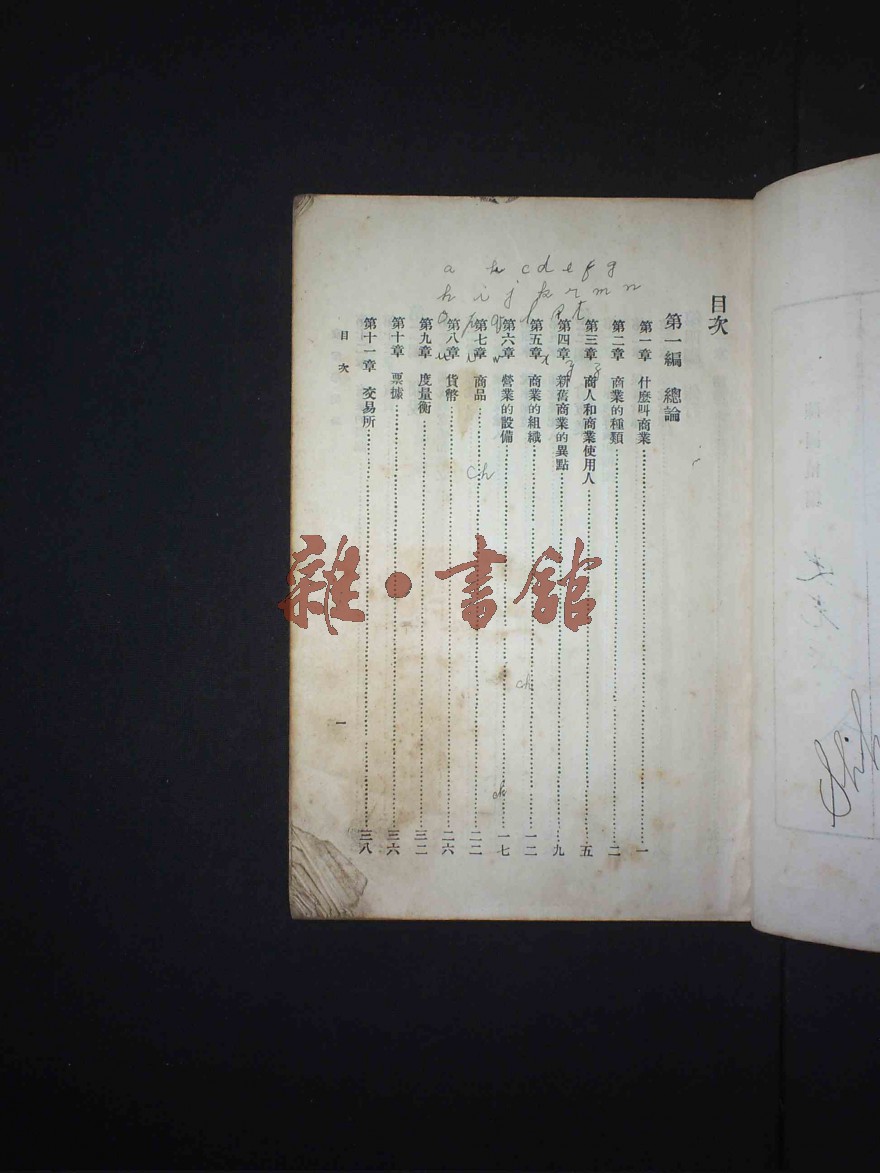 目次
第一編　總論
第一章　什麼叫商業……一
第二章　商業的種類……二
第三章　商人和商業使用人……五
第四章　新舊商業的異點……九
第五章　商業的組織……一二
第六章　營業的設備……一七
第七章　商品……二二
第八章　貨幣……二六
第九章　度量衡……三二
第十章　票據……三六
第十一章　交易所……三八
目次
一
a b c d e f g
h i j k r m n
ch
ch
ch
雜·書館